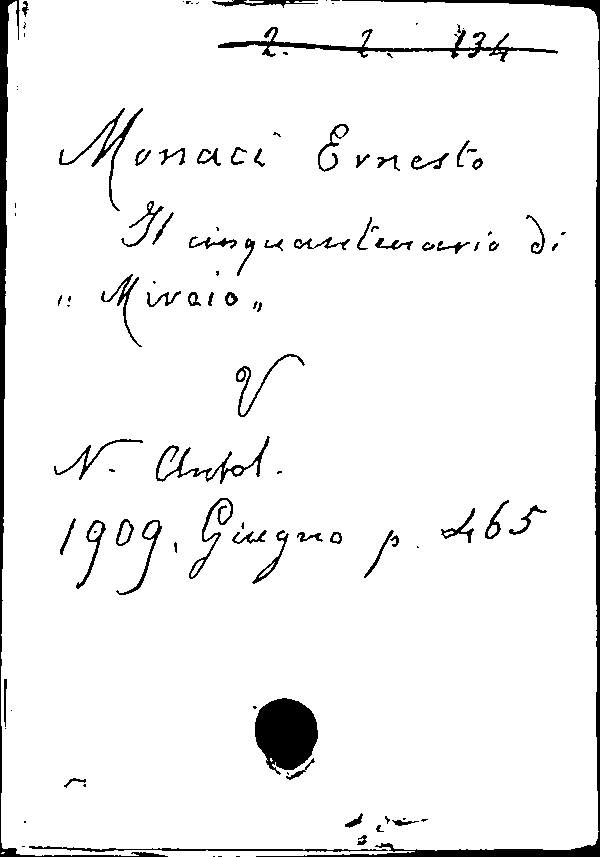 2. 2. 134
Monaci Ernesto
Il cinquantenario di
"Miraio"
V
N. Antol.
1909. Giugno p. 465